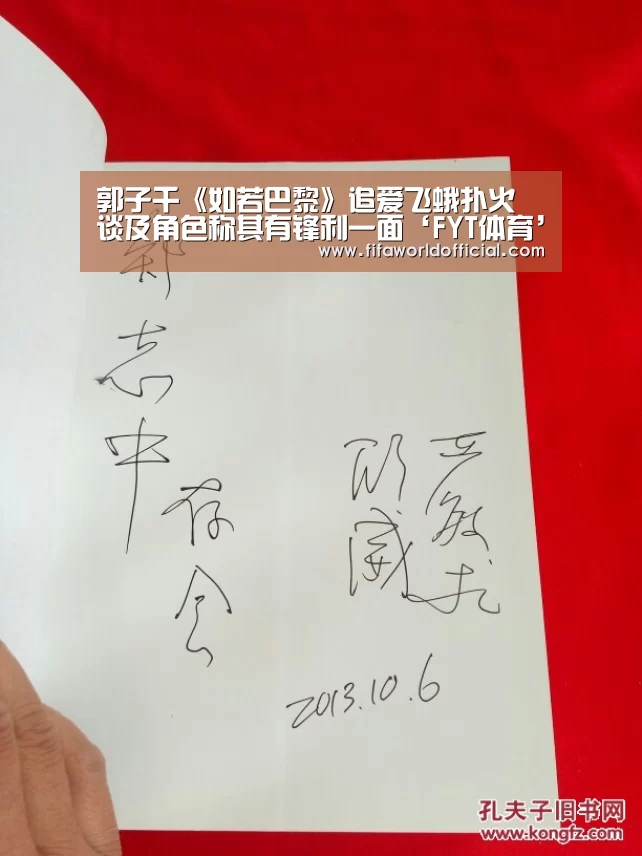 郭子干《如若巴黎》追爱飞蛾扑火
谈及角色称其有锋利一面‘FYT体育’
www.fifaworldofficial.com
郑
志
中
存
念
威
2013.10.6
孔夫子旧书网
www.kongfz.com